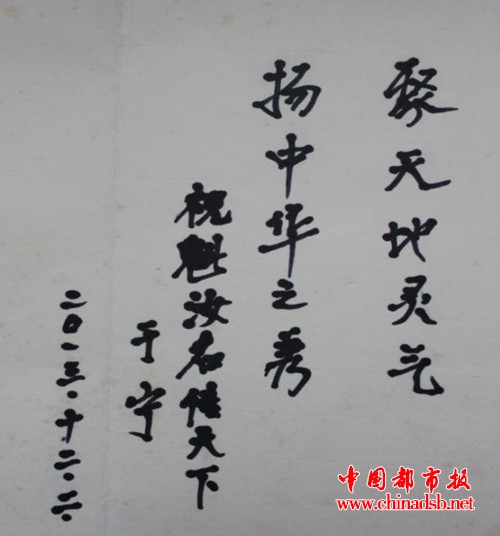 聚天地灵气
扬中华之秀
祝魁汝名传天下
于宁
二〇一三·十二·
中国都市报
www.chinadsb.net